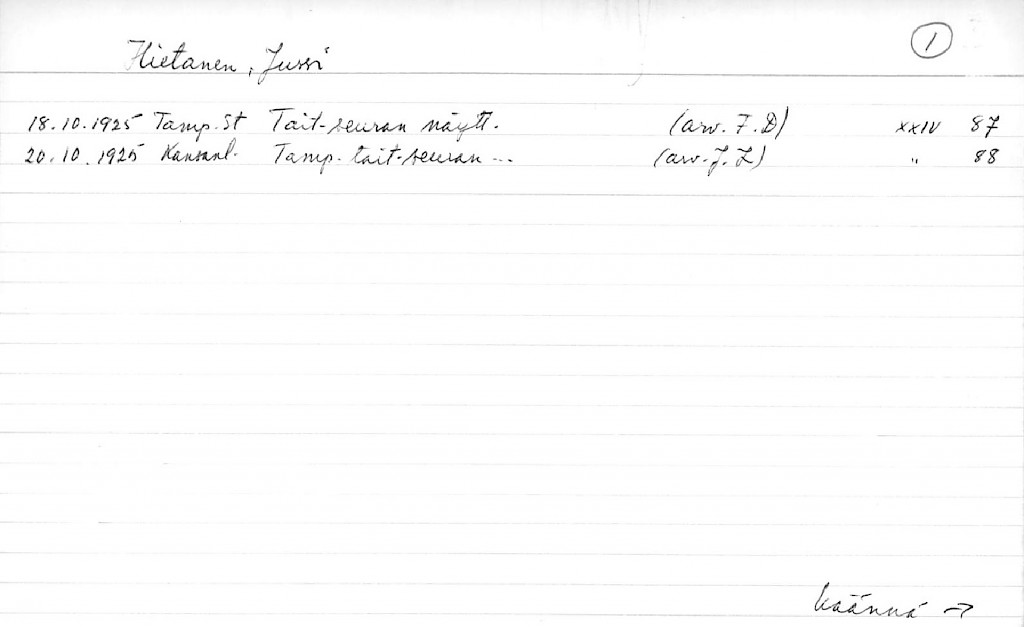 Hietanen, Jussi ①
18.10.1925 Tamp.St Tait-seuran näytt. (arv. F.D) XXIV 87
20.10.1925 Kansanl. Tamp. tait-seuran ... (arv. J.L) " 88
käännä →